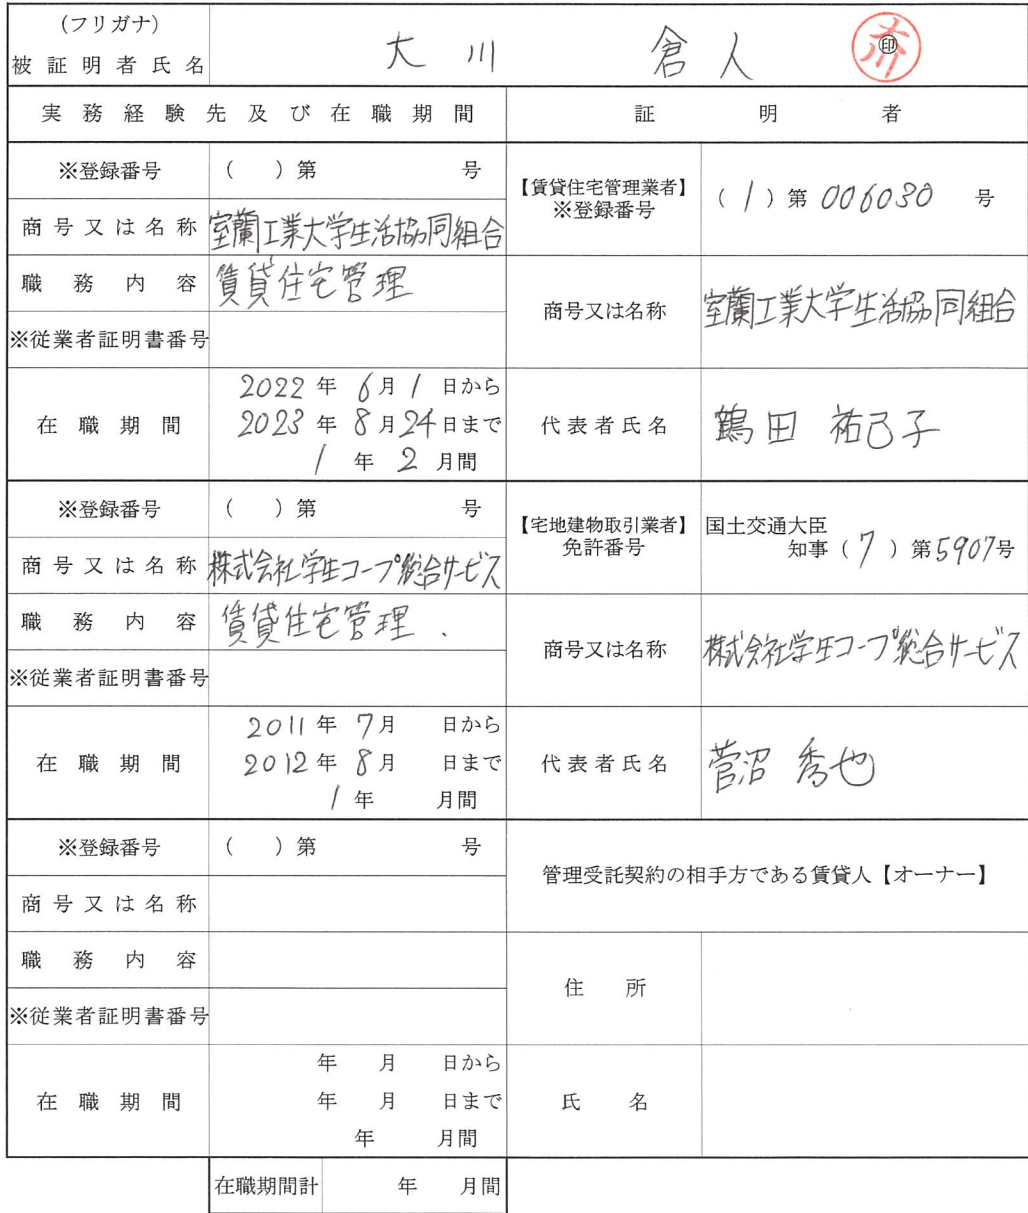 (フリガナ)
被証明者氏名 大川 倉人 ㊞ 大川
実務経験先及び在職期間 証明者
※登録番号 ( )第 号 【賃貸住宅管理業者】 ※登録番号 (1)第006030号
商号又は名称 室蘭工業大学生活協同組合
職務内容 賃貸住宅管理 商号又は名称 室蘭工業大学生活協同組合
※従業者証明書番号
在職期間 2022年6月1日から
2023年8月24日まで 代表者氏名 鶴田 祐己子
1年2月間
※登録番号 ( )第 号 【宅地建物取引業者】 免許番号 国土交通大臣
知事(7)第5907号
商号又は名称 株式会社学生コープ総合サービス
職務内容 賃貸住宅管理. 商号又は名称 株式会社学生コープ総合サービス
※従業者証明書番号
在職期間 2011年7月 日から
2012年8月 日まで 代表者氏名 菅沼 秀也
1年 月間
※登録番号 ( )第 号 管理受託契約の相手方である賃貸人【オーナー】
商号又は名称
職務内容 住所
※従業者証明書番号
在職期間 年 月 日から
年 月 日まで 氏名
年 月間
在職期間計 年 月間